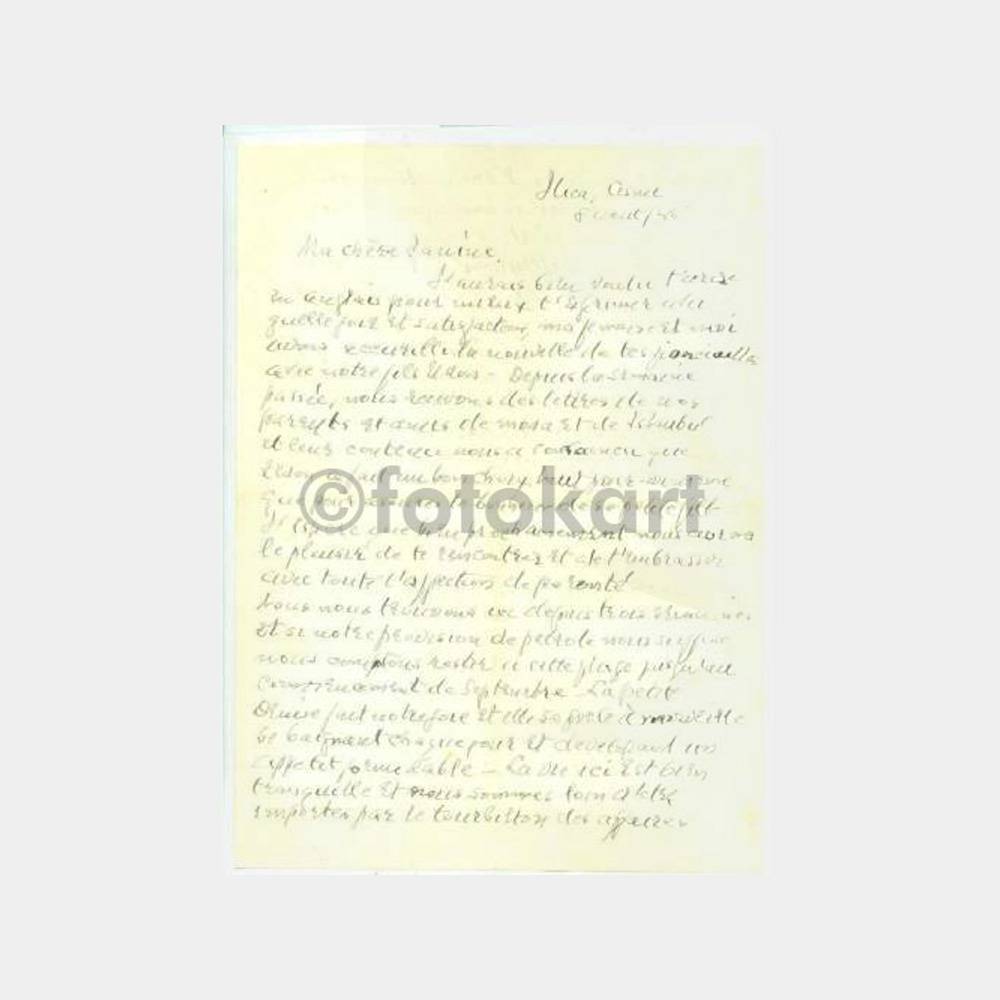 Ilıca, Çeşme
8 août/56
Ma chère Janine,
J'aurais bien voulu t'écrire
en anglais pour mieux t'exprimer
quelle joie et satisfaction, ma femme et moi
avons recueilli la nouvelle de tes fiançailles
avec notre fils - Depuis la semaine
passée, nous recevons des lettres de nos
parents et amis de et de
et leur contenu nous a convaincu que
a fait un bon choix tout
©fotokart
que pour
que prochainement nous aurons
le plaisir de te rencontrer et de t'embrasser
avec toute l'affection de parenté
Nous nous trouvons ici depuis trois semaines
et si notre provision de pétrole nous suffit
nous comptons rester à cette plage jusqu'au
commencement de Septembre - La petite
Denise fait notre joie et elle à merveille
se baignant chaque jour et développant un
appétit formidable - La vie ici est bien
tranquille et nous sommes loin d'être
emportés par le tourbillon des affaires